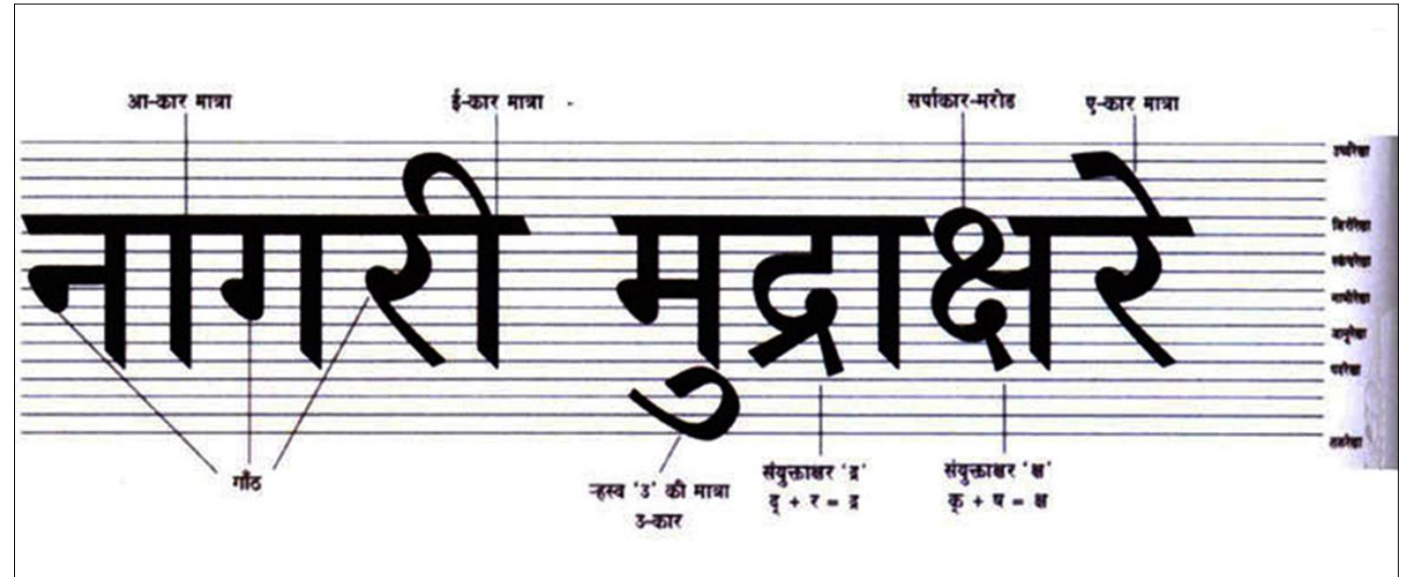 आ-कार मात्रा
ई-कार मात्रा
सर्पाकार-मरोड
ए-कार मात्रा
नागरी मुद्राक्षरे
शिरोरेखा
स्कंधरेखा
नाभीरेखा
जानूरेखा
पदरेखा
तलरेखा
गाँठ
ऱ्हस्व ‘उ’ की मात्रा
उ-कार
संयुक्ताक्षर ‘द्र’
द् + र = द्र
संयुक्ताक्षर ‘क्ष’
क् + ष = क्ष